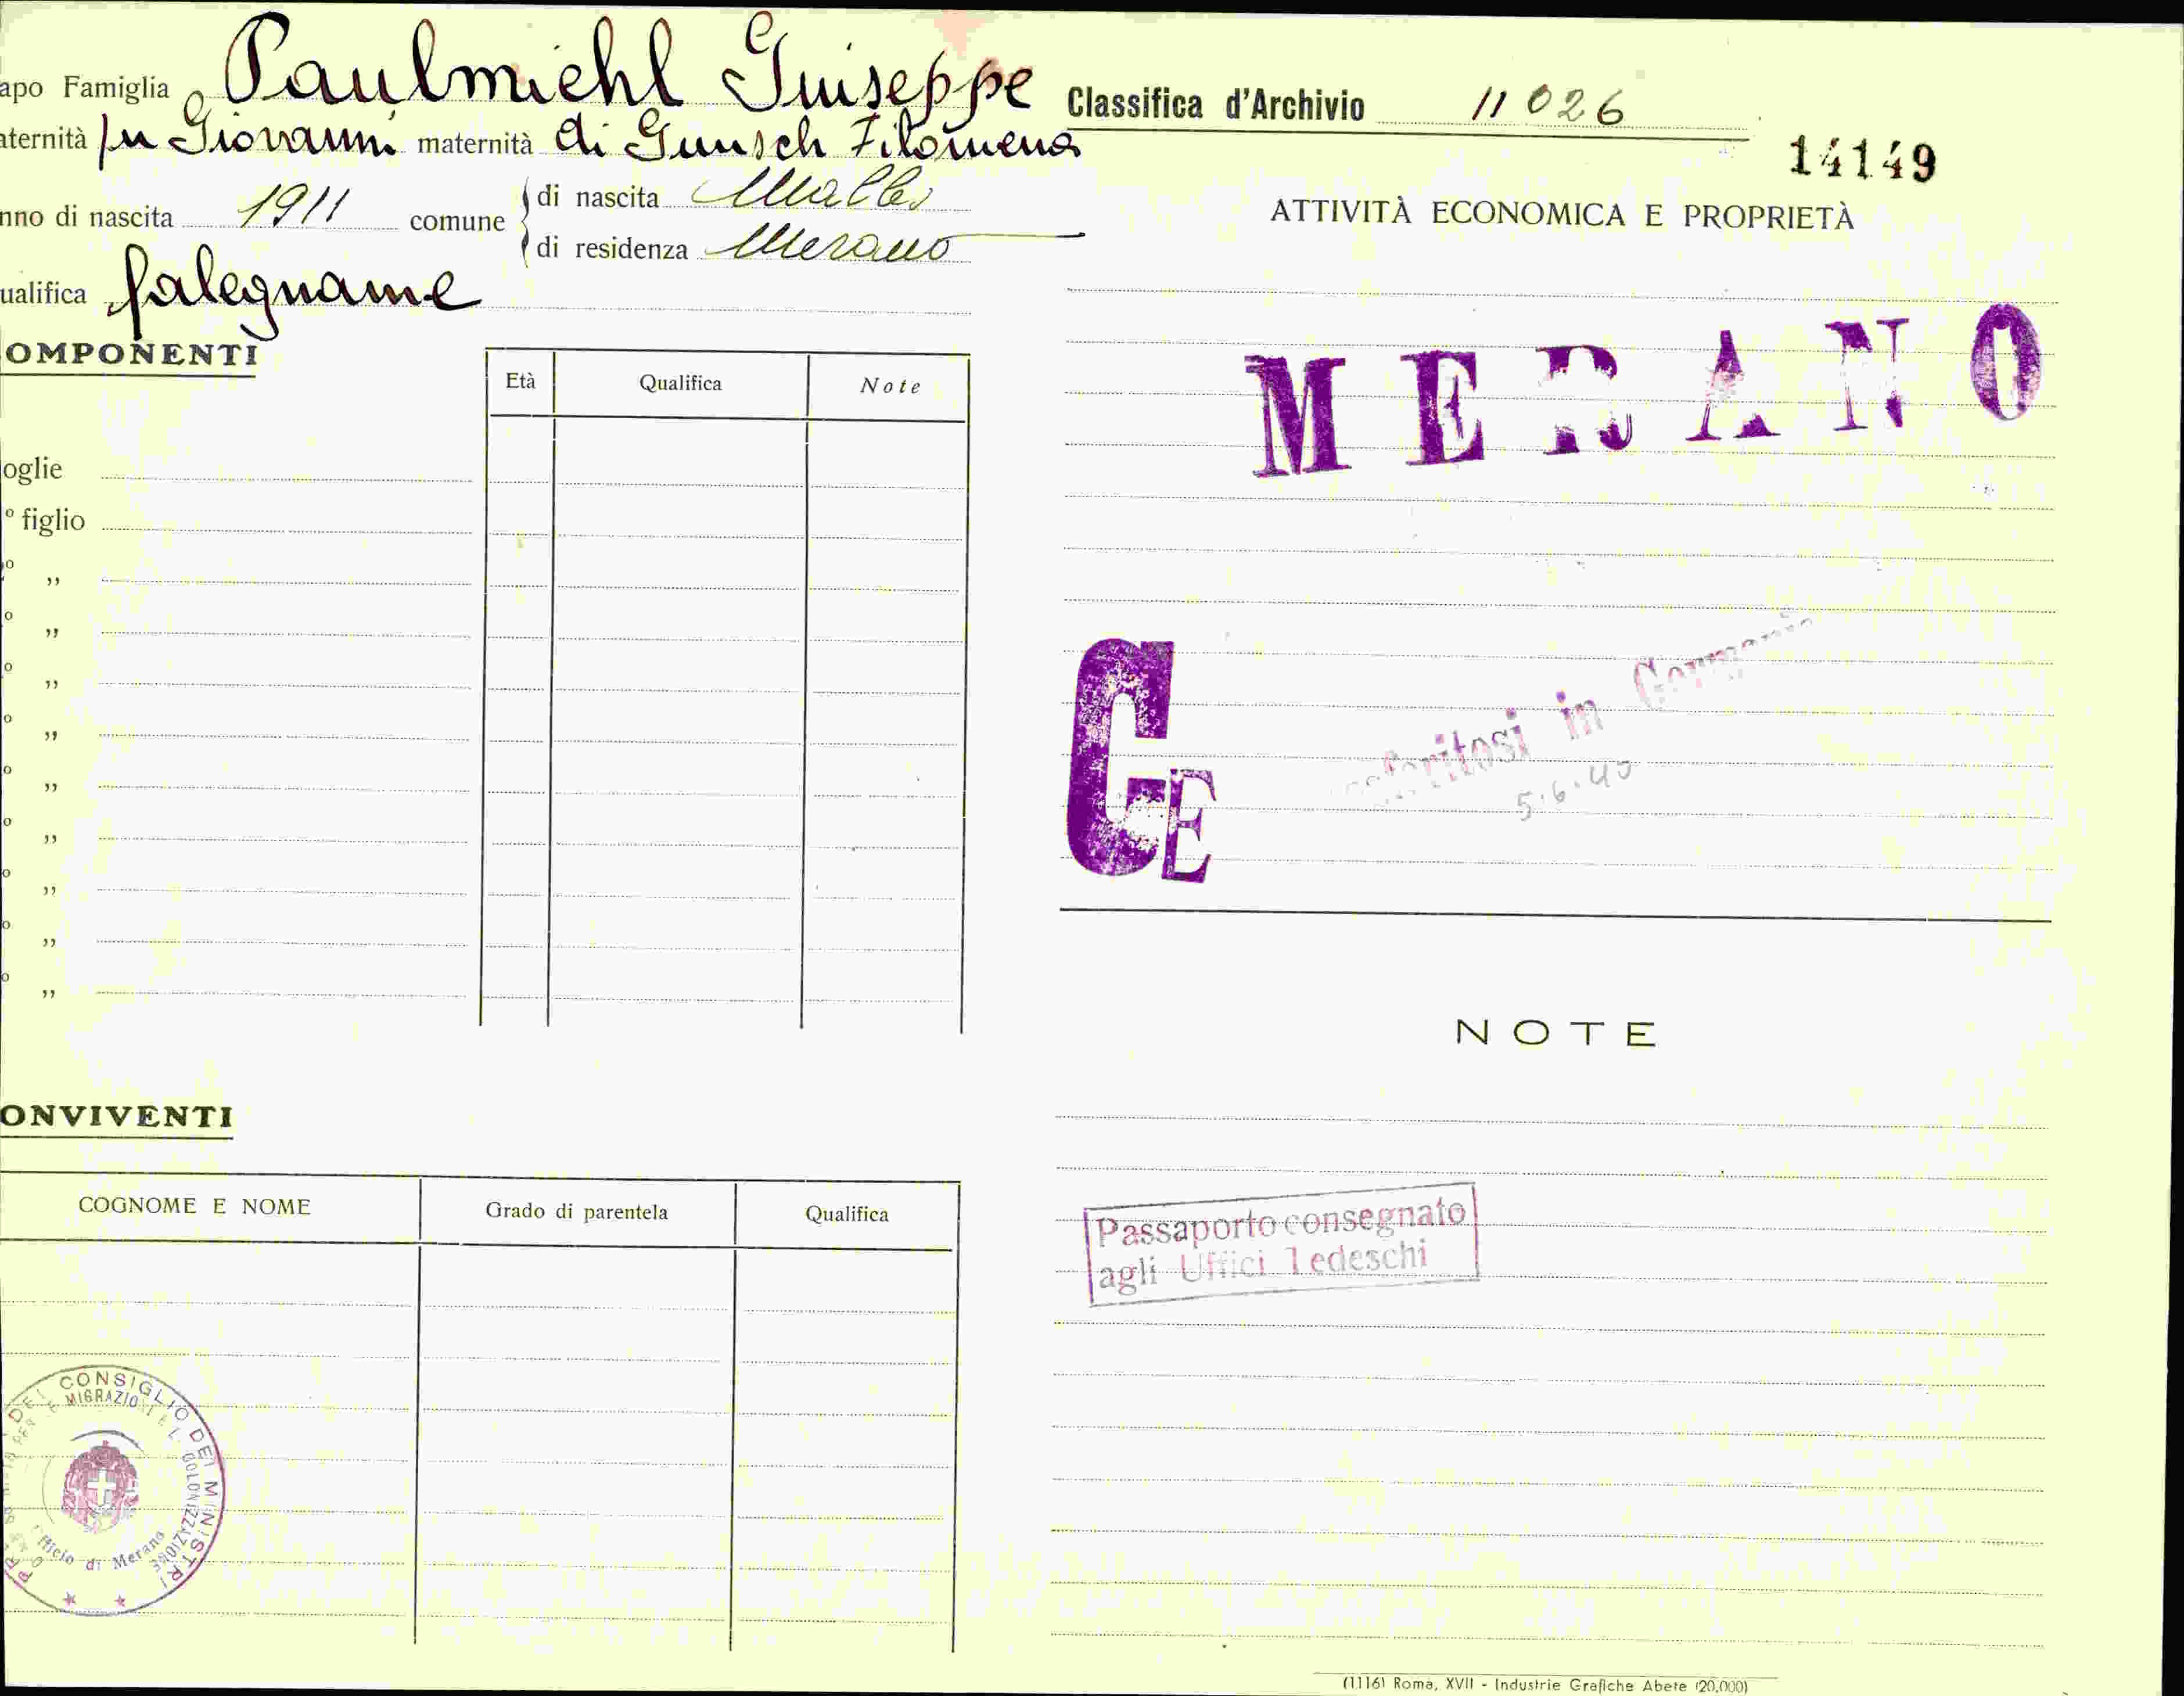 apo Famiglia Paulmichl Guiseppe
aternità fu Giovanni maternità di Gunsch Filomena
nno di nascita 1911 comune di nascita Malles
di residenza Merano
ualifica falegname
OMPONENTI
Età Qualifica Note
oglie
° figlio
o ,,
o ,,
o ,,
o ,,
o ,,
o ,,
o ,,
o ,,
o ,,
ONVIVENTI
COGNOME E NOME Grado di parentela Qualifica
DEL CONSIGLIO DEI MINISTRI
COLONIZZAZIONE
di Merano
Classifica d'Archivio 11026
14149
ATTIVITÀ ECONOMICA E PROPRIETÀ
MERANO
CE
in Germania
5.6.40
NOTE
Passaporto consegnato
agli Uffici Tedeschi
(1116) Roma, XVII - Industrie Grafiche Abete (20.000)